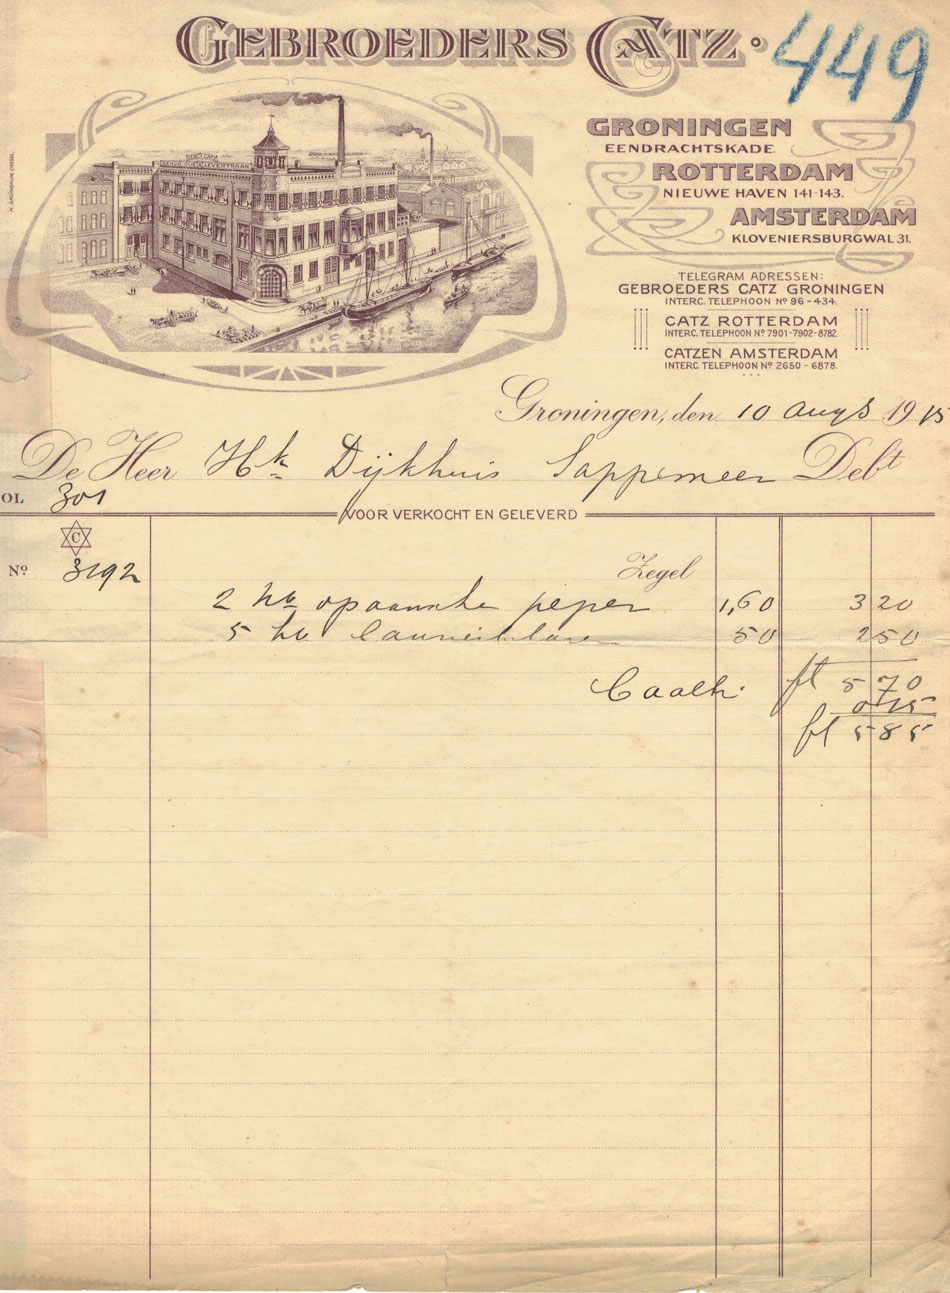 GEBROEDERS CATZ.
449
GRONINGEN
EENDRACHTSKADE
ROTTERDAM
NIEUWE HAVEN 141-143.
AMSTERDAM
KLOVENIERSBURGWAL 31.
TELEGRAM ADRESSEN:
GEBROEDERS CATZ GRONINGEN
INTERC. TELEPHOON Nº 96-434.
CATZ ROTTERDAM
INTERC. TELEPHOON Nº 7901-7902-8782.
CATZEN AMSTERDAM
INTERC. TELEPHOON Nº 2650-6878.
Groningen, den 10 Augs 1915
De Heer Hk Dijkhuis Sappemeer Debt
OL 301
VOOR VERKOCHT EN GELEVERD
C
Nº 3192
Zegel
2 peper 1,60 3 20
5 50 2 50
ft 5 70
0 15
ft 5 85